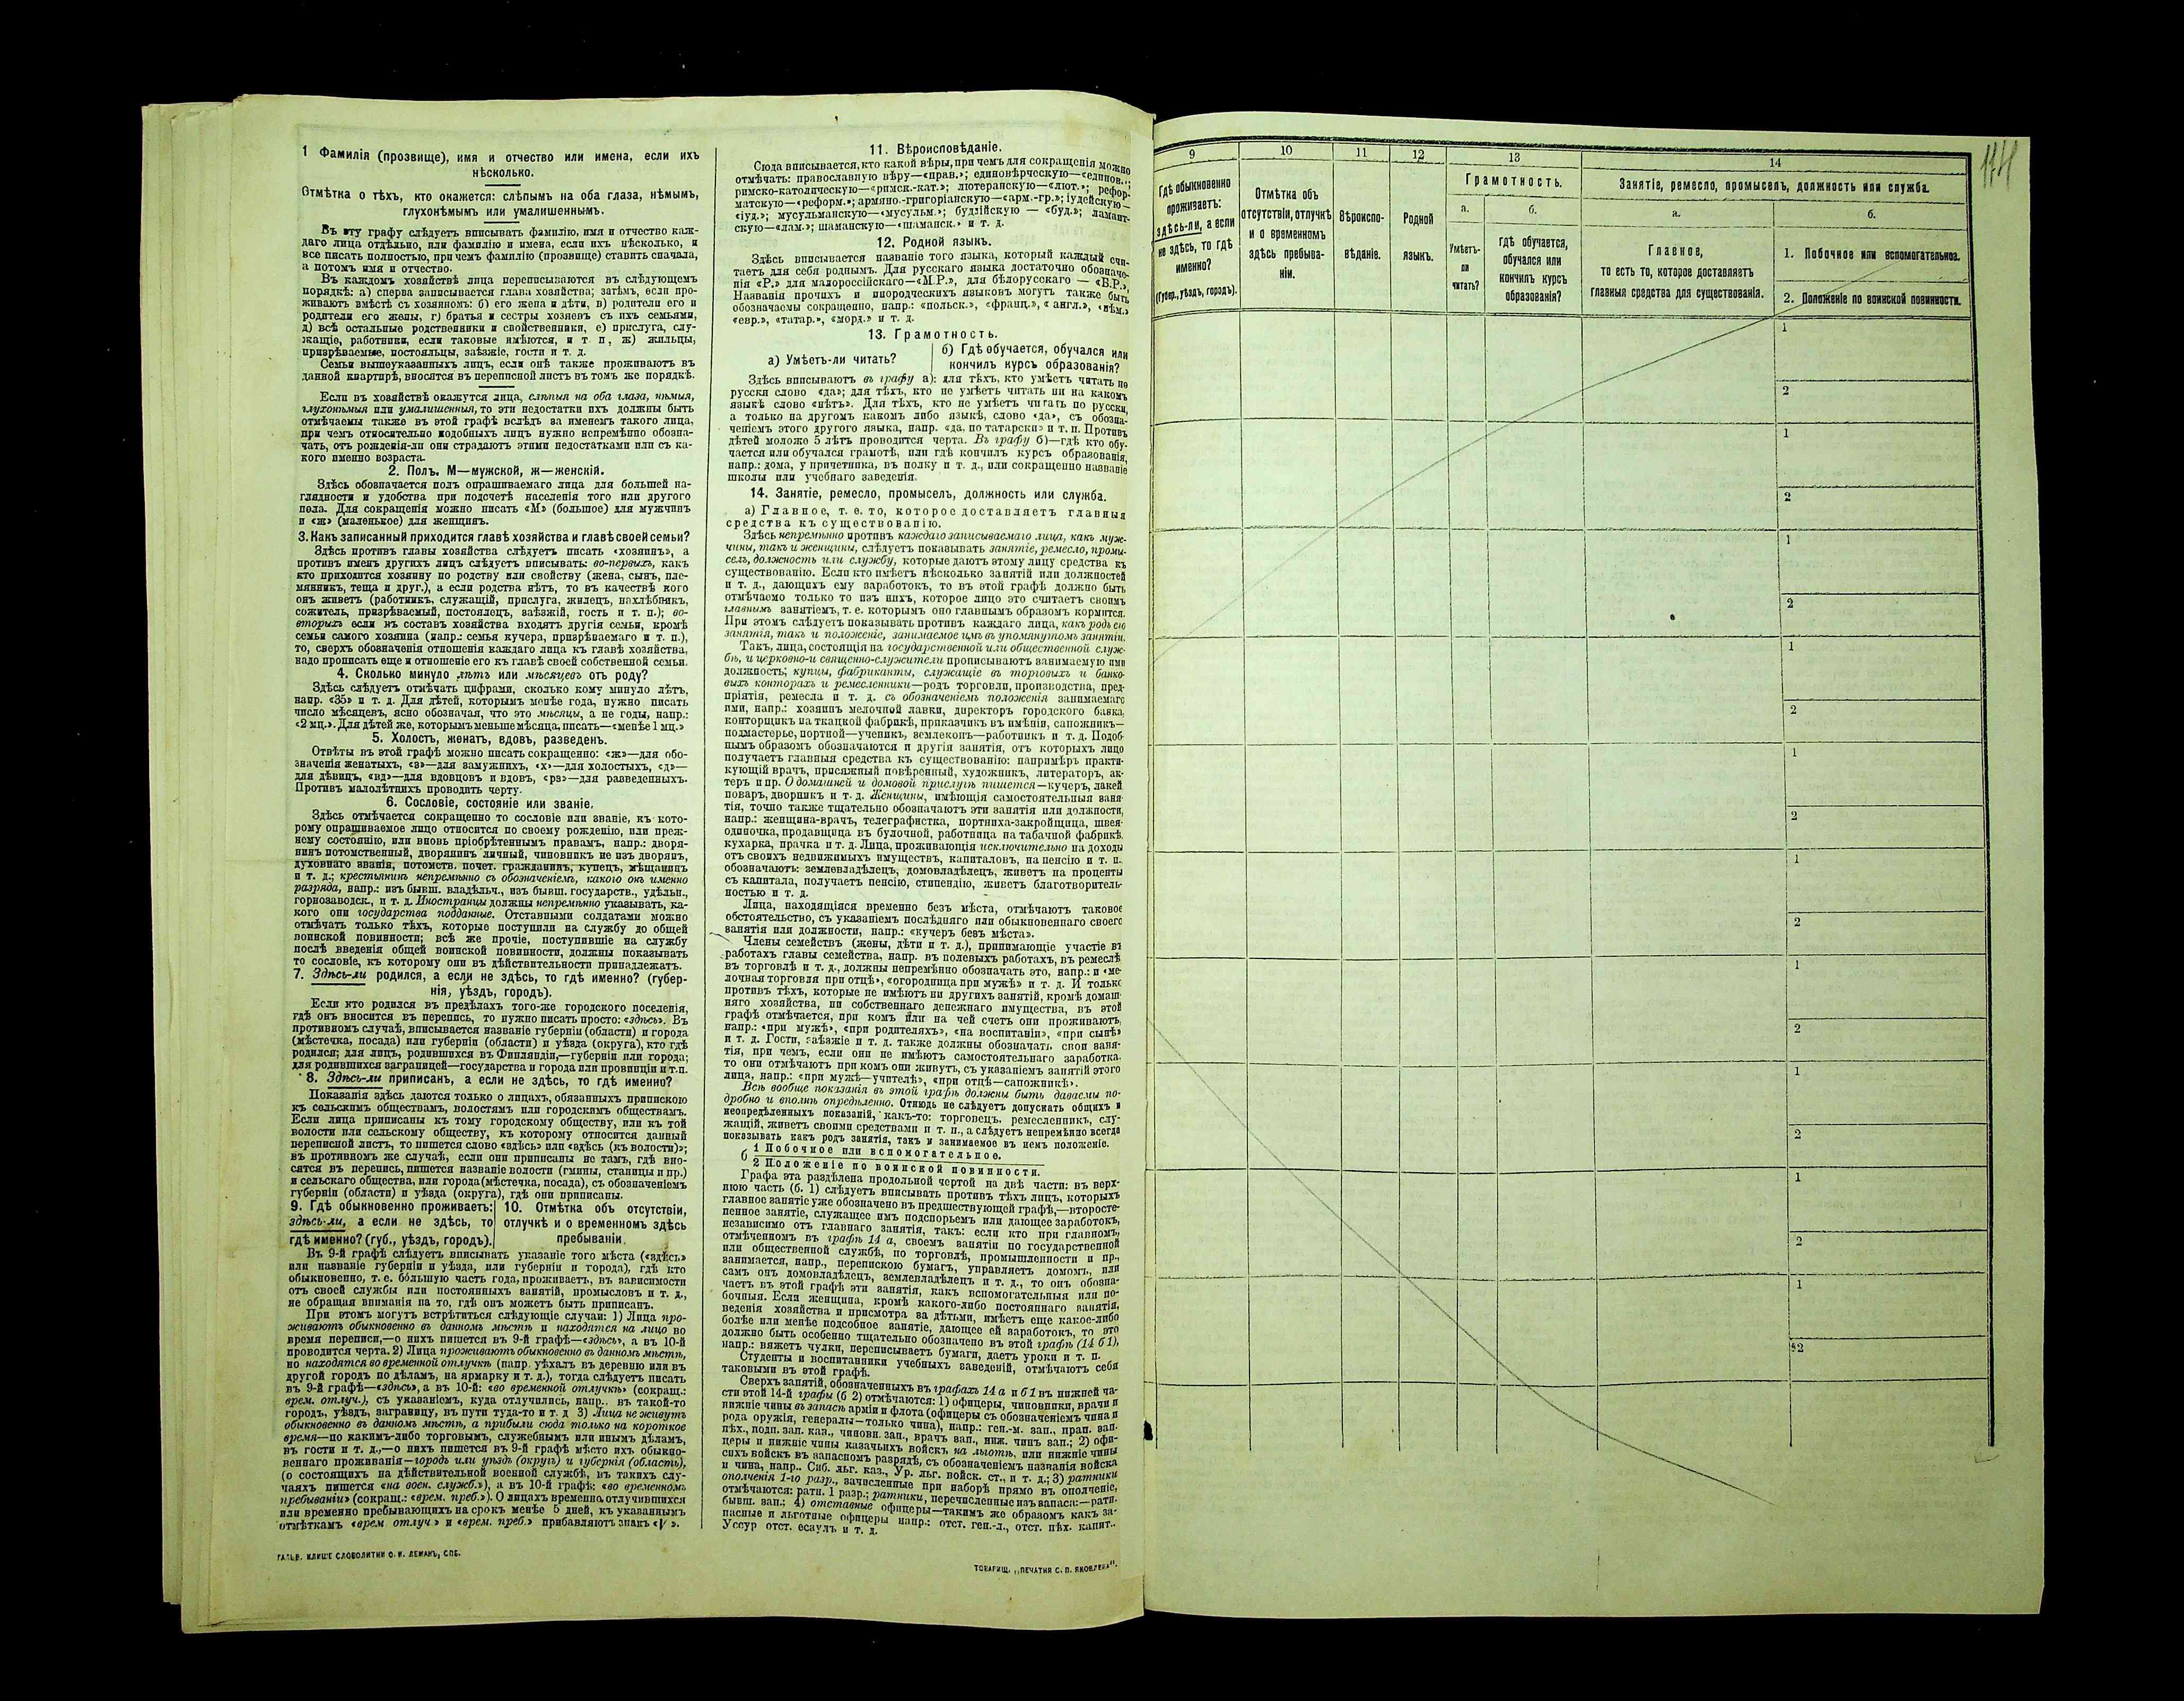 1 Фамилія (прозвище), имя и отчество или имена, если ихъ
нѣсколько.
Отмѣтка о тѣхъ, кто окажется: слѣпымъ на оба глаза, нѣмымъ,
глухонѣмымъ или умалишеннымъ.
Въ эту графу слѣдуетъ вписывать фамилію, имя и отчество каж-
даго лица отдѣльно, или фамилію и имена, если ихъ нѣсколько, и
все писать полностью, при чемъ фамилію (прозвище) ставить сначала,
а потомъ имя и отчество.
Въ каждомъ хозяйствѣ лица переписываются въ слѣдующемъ
порядкѣ: а) сперва записывается глава хозяйства; затѣмъ, если про-
живаютъ вмѣстѣ съ хозяиномъ: б) его жена и дѣти, в) родители его и
родители его жены, г) братья и сестры хозяевъ съ ихъ семьями,
д) всѣ остальные родственники и свойственники, е) прислуга, слу-
жащіе, работники, если таковые имѣются, и т. п, ж) жильцы,
призрѣваемые, постояльцы, заѣзжіе, гости и т. д.
Семьи вышеуказанныхъ лицъ, если онѣ также проживаютъ въ
данной квартирѣ, вносятся въ переписной листъ въ томъ же порядкѣ.
Если въ хозяйствѣ окажутся лица, слѣпыя на оба глаза, нѣмыя,
глухонѣмыя или умалишенныя, то эти недостатки ихъ должны быть
отмѣчаемы также въ этой графѣ вслѣдъ за именемъ такого лица,
при чемъ относительно подобныхъ лицъ нужно непремѣнно обозна-
чать, отъ рожденія-ли они страдаютъ этими недостатками или съ ка-
кого именно возраста.
2. Полъ. М—мужской, ж—женскій.
Здѣсь обозначается полъ опрашиваемаго лица для большей на-
глядности и удобства при подсчетѣ населенія того или другого
пола. Для сокращенія можно писать «М» (большое) для мужчинъ
и «ж» (маленькое) для женщинъ.
3. Какъ записанный приходится главѣ хозяйства и главѣ своей семьи?
Здѣсь противъ главы хозяйства слѣдуетъ писать «хозяинъ», а
противъ именъ другихъ лицъ слѣдуетъ вписывать: во-первыхъ, какъ
кто приходится хозяину по родству или свойству (жена, сынъ, пле-
мянникъ, теща и друг.), а если родства нѣтъ, то въ качествѣ кого
онъ живетъ (работникъ, служащій, прислуга, жилецъ, нахлѣбникъ,
сожитель, призрѣваемый, постоялецъ, заѣзжій, гость и т. п.); во-
вторыхъ если въ составъ хозяйства входятъ другія семьи, кромѣ
семьи самого хозяина (напр.: семья кучера, призрѣваемаго и т. п.),
то, сверхъ обозначенія отношенія каждаго лица къ главѣ хозяйства,
надо прописать еще и отношеніе его къ главѣ своей собственной семьи.
4. Сколько минуло лѣтъ или мѣсяцевъ отъ роду?
Здѣсь слѣдуетъ отмѣчать цифрами, сколько кому минуло лѣтъ,
напр. «35» и т. д. Для дѣтей, которымъ менѣе года, нужно писать
число мѣсяцевъ, ясно обозначая, что это мѣсяцы, а не годы, напр.:
«2 мц.». Для дѣтей же, которымъ меньше мѣсяца, писать—«менѣе 1 мц.»
5. Холостъ, женатъ, вдовъ, разведенъ.
Отвѣты въ этой графѣ можно писать сокращенно: «ж»—для обо-
значенія женатыхъ, «з»—для замужнихъ, «х»—для холостыхъ, «д»—
для дѣвицъ, «вд»—для вдовцовъ и вдовъ, «рз»—для разведенныхъ.
Противъ малолѣтнихъ проводить черту.
6. Сословіе, состояніе или званіе.
Здѣсь отмѣчается сокращенно то сословіе или званіе, къ кото-
рому опрашиваемое лицо относится по своему рожденію, или преж-
нему состоянію, или вновь пріобрѣтеннымъ правамъ, напр.: дворя-
нинъ потомственный, дворянинъ личный, чиновникъ не изъ дворянъ,
духовнаго званія, потомств. почет. гражданинъ, купецъ, мѣщанинъ
и т. д.; крестьянинъ непремѣнно съ обозначеніемъ, какого онъ именно
разряда, напр.: изъ бывш. владѣльч., изъ бывш. государств., удѣльн.,
горнозаводск., и т. д. Иностранцы должны непремѣнно указывать, ка-
кого они государства подданные. Отставными солдатами можно
отмѣчать только тѣхъ, которые поступили на службу до общей
воинской повинности; всѣ же прочіе, поступившіе на службу
послѣ введенія общей воинской повинности, должны показывать
то сословіе, къ которому они въ дѣйствительности принадлежатъ.
7. Здѣсь-ли родился, а если не здѣсь, то гдѣ именно? (губер-
нія, уѣздъ, городъ).
Если кто родился въ предѣлахъ того-же городского поселенія,
гдѣ онъ вносится въ перепись, то нужно писать просто: «здѣсь». Въ
противномъ случаѣ, вписывается названіе губерніи (области) и города
(мѣстечка, посада) или губерніи (области) и уѣзда (округа), кто гдѣ
родился; для лицъ, родившихся въ Финляндіи,—губерніи или города;
для родившихся заграницей—государства и города или провинціи и т.п.
8. Здѣсь-ли приписанъ, а если не здѣсь, то гдѣ именно?
Показанія здѣсь даются только о лицахъ, обязанныхъ припискою
къ сельскимъ обществамъ, волостямъ или городскимъ обществамъ.
Если лица приписаны къ тому городскому обществу, или къ той
волости или сельскому обществу, къ которому относится данный
переписной листъ, то пишется слово «здѣсь» или «здѣсь (къ волости)»;
въ противномъ же случаѣ, если они приписаны не тамъ, гдѣ вно-
сятся въ перепись, пишется названіе волости (гмины, станицы и пр.)
и сельскаго общества, или города (мѣстечка, посада), съ обозначеніемъ
губерніи (области) и уѣзда (округа), гдѣ они приписаны.
9. Гдѣ обыкновенно проживаетъ:
здѣсь-ли, а если не здѣсь, то
гдѣ именно? (губ., уѣздъ, городъ).
10. Отмѣтка объ отсутствіи,
отлучкѣ и о временномъ здѣсь
пребываніи.
Въ 9-й графѣ слѣдуетъ вписывать указаніе того мѣста («здѣсь»
или названіе губерніи и уѣзда, или губерніи и города), гдѣ кто
обыкновенно, т. е. бо́льшую часть года, проживаетъ, въ зависимости
отъ своей службы или постоянныхъ занятій, промысловъ и т. д.,
не обращая вниманія на то, гдѣ онъ можетъ быть приписанъ.
При этомъ могутъ встрѣтиться слѣдующіе случаи: 1) Лица про-
живаютъ обыкновенно въ данномъ мѣстѣ и находятся на лицо во
время переписи,—о нихъ пишется въ 9-й графѣ—«здѣсь», а въ 10-й
проводится черта. 2) Лица проживаютъ обыкновенно въ данномъ мѣстѣ,
но находятся во временной отлучкѣ (напр. уѣхалъ въ деревню или въ
другой городъ по дѣламъ, на ярмарку и т. д.), тогда слѣдуетъ писать
въ 9-й графѣ—«здѣсь», а въ 10-й: «во временной отлучкѣ» (сокращ.:
врем. отлуч.), съ указаніемъ, куда отлучились, напр.. въ такой-то
городъ, уѣздъ, заграницу, въ пути туда-то и т. д 3) Лица не живутъ
обыкновенно въ данномъ мѣстѣ, а прибыли сюда только на короткое
время—по какимъ-либо торговымъ, служебнымъ или инымъ дѣламъ,
въ гости и т. д.,—о нихъ пишется въ 9-й графѣ мѣсто ихъ обыкно-
веннаго проживанія—городъ или уѣздъ (округъ) и губернія (область),
(о состоящихъ на дѣйствительной военной службѣ, въ такихъ слу-
чаяхъ пишется «на воен. служб.»), а въ 10-й графѣ: «во временномъ
пребываніи» (сокращ.: «врем. преб.»). О лицахъ временно отлучившихся
или временно пребывающихъ на срокъ менѣе 5 дней, къ указаннымъ
отмѣткамъ «врем отлуч » и «врем. преб.» прибавляютъ знакъ «√ ».
11. Вѣроисповѣданіе.
Сюда вписывается, кто какой вѣры, при чемъ для сокращенія можно
отмѣчать: православную вѣру—«прав.»; единовѣрческую—«единов.»;
римско-католическую—«римск.-кат.»; лютеранскую—«лют.»; рефор-
матскую—«реформ.»; армяно.-григоріанскую—«арм.-гр.»; іудейскую—
«іуд.»; мусульманскую—«мусульм.»; буддійскую — «буд.»; ламаит-
скую—«лам.»; шаманскую—«шаманск.» и т. д.
12. Родной языкъ.
Здѣсь вписывается названіе того языка, который каждый счи-
таетъ для себя роднымъ. Для русскаго языка достаточно обозначе-
нія «Р.» для малороссійскаго—«М.Р.», для бѣлорусскаго — «Б.Р.»,
Названія прочихъ и инородческихъ языковъ могутъ также быть
обозначаемы сокращенно, напр.: «польск.», «франц.», « англ.», «нѣм.»
«евр.», «татар.», «морд.» и т. д.
13. Грамотность.
а) Умѣетъ-ли читать?
б) Гдѣ обучается, обучался или
кончилъ курсъ образованія?
Здѣсь вписываютъ въ графу а): для тѣхъ, кто умѣетъ читать по
русски слово «да»; для тѣхъ, кто не умѣетъ читать ни на какомъ
языкѣ слово «нѣтъ». Для тѣхъ, кто не умѣетъ читать по русски,
а только на другомъ какомъ либо языкѣ, слово «да», съ обозна-
ченіемъ этого другого языка, напр. «да, по татарски» и т. п. Противъ
дѣтей моложе 5 лѣтъ проводится черта. Въ графу б)—гдѣ кто обу-
чается или обучался грамотѣ, или гдѣ кончилъ курсъ образованія,
напр.: дома, у причетника, въ полку и т. д., или сокращенно названіе
школы или учебнаго заведенія.
14. Занятіе, ремесло, промыселъ, должность или служба.
а) Главное, т. е. то, которое доставляетъ главныя
средства къ существованію.
Здѣсь непремѣнно противъ каждаго записываемаго лица, какъ муж-
чины, такъ и женщины, слѣдуетъ показывать занятіе, ремесло, промы-
селъ, должность или службу, которые даютъ этому лицу средства къ
существованію. Если кто имѣетъ нѣсколько занятій или должностей
и т. д., дающихъ ему заработокъ, то въ этой графѣ должно быть
отмѣчаемо только то изъ нихъ, которое лицо это считаетъ своимъ
главнымъ занятіемъ, т. е. которымъ оно главнымъ образомъ кормится.
При этомъ слѣдуетъ показывать противъ каждаго лица, какъ родъ его
занятія, такъ и положеніе, занимаемое имъ въ упомянутомъ занятіи.
Такъ, лица, состоящія на государственной или общественной служ-
бѣ, и церковно-и священно-служители прописываютъ занимаемую ими
должность; купцы, фабриканты, служащіе въ торговыхъ и банко-
выхъ конторахъ и ремесленники—родъ торговли, производства, пред-
пріятія, ремесла и т. д. съ обозначеніемъ положенія занимаемаго
ими, напр.: хозяинъ мелочной лавки, директоръ городского банка,
конторщикъ на ткацкой фабрикѣ, приказчикъ въ имѣніи, сапожникъ—
подмастерье, портной—ученикъ, землекопъ—работникъ и т. д. Подоб-
нымъ образомъ обозначаются и другія занятія, отъ которыхъ лицо
получаетъ главныя средства къ существованію: напримѣръ практи-
кующій врачъ, присяжный повѣренный, художникъ, литераторъ, ак-
теръ и пр. О домашней и домовой прислугѣ пишется—кучеръ, лакей
поваръ, дворникъ и т. д. Женщины, имѣющія самостоятельныя заня-
тія, точно также тщательно обозначаютъ эти занятія или должности,
напр.: женщина-врачъ, телеграфистка, портниха-закройщица, швея-
одиночка, продавщица въ булочной, работница на табачной фабрикѣ,
кухарка, прачка и т. д. Лица, проживающія исключительно на доходы
отъ своихъ недвижимыхъ имуществъ, капиталовъ, на пенсію и т. п.
обозначаютъ: землевладѣлецъ, домовладѣлецъ, живетъ на проценты
съ капитала, получаетъ пенсію, стипендію, живетъ благотворитель-
ностью и т. д.
Лица, находящіяся временно безъ мѣста, отмѣчаютъ таковое
обстоятельство, съ указаніемъ послѣдняго или обыкновеннаго своего
занятія или должности, напр.: «кучеръ безъ мѣста».
Члены семействъ (жены, дѣти и т. д.), принимающіе участіе въ
работахъ главы семейства, напр. въ полевыхъ работахъ, въ ремеслѣ
въ торговлѣ и т. д., должны непремѣнно обозначать это, напр.: и «ме-
лочная торговля при отцѣ», «огородница при мужѣ» и т. д. И только
противъ тѣхъ, которые не имѣютъ ни другихъ занятій, кромѣ домаш-
няго хозяйства, ни собственнаго денежнаго имущества, въ этой
графѣ отмѣчается, при комъ или на чей счетъ они проживаютъ,
напр.: «при мужѣ», «при родителяхъ», «на воспитаніи», «при сынѣ»
и т. д. Гости, заѣзжіе и т. д. также должны обозначать свои заня-
тія, при чемъ, если они не имѣютъ самостоятельнаго заработка,
то они отмѣчаютъ при комъ они живутъ, съ указаніемъ занятій этого
лица, напр.: «при мужѣ—учителѣ», «при отцѣ—сапожникѣ».
Всѣ вообще показанія въ этой графѣ должны быть даваемы по-
дробно и вполнѣ опредѣленно. Отнюдь не слѣдуетъ допускать общихъ и
неопредѣленныхъ показаній, какъ-то: торговецъ, ремесленникъ, слу-
жащій, живетъ своими средствами и т. п., а слѣдуетъ непремѣнно всегда
показывать какъ родъ занятія, такъ и занимаемое въ немъ положеніе.
б 1 Побочное или вспомогательное.
2 Положеніе по воинской повинности.
Графа эта раздѣлена продольной чертой на двѣ части: въ верх-
нюю часть (б. 1) слѣдуетъ вписывать противъ тѣхъ лицъ, которыхъ
главное занятіе уже обозначено въ предшествующей графѣ,—второсте-
пенное занятіе, служащее имъ подспорьемъ или дающее заработокъ,
независимо отъ главнаго занятія, такъ: если кто при главномъ,
отмѣченномъ въ графѣ 14 а, своемъ занятіи по государственной
или общественной службѣ, по торговлѣ, промышленности и пр.,
занимается, напр., перепискою бумагъ, управляетъ домомъ, или
самъ онъ домовладѣлецъ, землевладѣлецъ и т. д., то онъ обозна-
чаетъ въ этой графѣ эти занятія, какъ вспомогательныя или по-
бочныя. Если женщина, кромѣ какого-либо постояннаго занятія,
веденія хозяйства и присмотра за дѣтьми, имѣетъ еще какое-либо
болѣе или менѣе подсобное занятіе, дающее ей заработокъ, то это
должно быть особенно тщательно обозначено въ этой графѣ (14 б 1),
напр.: вяжетъ чулки, переписываетъ бумаги, даетъ уроки и т. п.
Студенты и воспитанники учебныхъ заведеній, отмѣчаютъ себя
таковыми въ этой графѣ.
Сверхъ занятій, обозначенныхъ въ графахъ 14 а и б 1 въ нижней ча-
сти этой 14-й графы (б 2) отмѣчаются: 1) офицеры, чиновники, врачи и
нижніе чины въ запасѣ арміи и флота (офицеры съ обозначеніемъ чина и
рода оружія, генералы—только чина), напр.: ген.-м. зап., прап. зап.
пѣх., подп. зап. каз., чиновн. зап., врачъ зап., ниж. чинъ зап.; 2) офи-
церы и нижніе чины казачьихъ войскъ на льготѣ, или нижніе чины
сихъ войскъ въ запасномъ разрядѣ, съ обозначеніемъ названія войска
и чина, напр.. Сиб. льг. каз., Ур. льг. войск. ст., и т. д.; 3) ратники
ополченія 1-го разр., зачисленные при наборѣ прямо въ ополченіе,
отмѣчаются: ратн. 1 разр.; ратники, перечисленные изъ запаса:—ратн.
бывш. зап.; 4) отставные офицеры—такимъ же образомъ какъ за-
пасные и льготные офицеры напр.: отст. ген.-л., отст. пѣх. капит..
Уссур отст. есаулъ и т. д.
ТОВАРИЩ. „ПЕЧАТНЯ С. П. ЯКОВЛЕВА“.
9
Гдѣ обыкновенно
проживаетъ:
здѣсь-ли, а если
не здѣсь, то гдѣ
именно?
(Губер., уѣздъ, городъ).
10
Отмѣтка объ
отсутствіи, отлучкѣ
и о временномъ
здѣсь пребыва-
ніи.
11
Вѣроиспо-
вѣданіе.
12
Родной
языкъ.
13
Грамотность.
а.
Умѣетъ-
ли
читать?
б.
гдѣ обучается,
обучался или
кончилъ курсъ
образованія?
14
Занятіе, ремесло, промыселъ, должность или служба.
а.
Главное,
то есть то, которое доставляетъ
главныя средства для существованія.
б.
1. Побочное или вспомогательное.
2. Положеніе по воинской повинности.
1
2
1
2
1
2
1
2
1
2
1
2
1
2
1
2
1
2
1
2